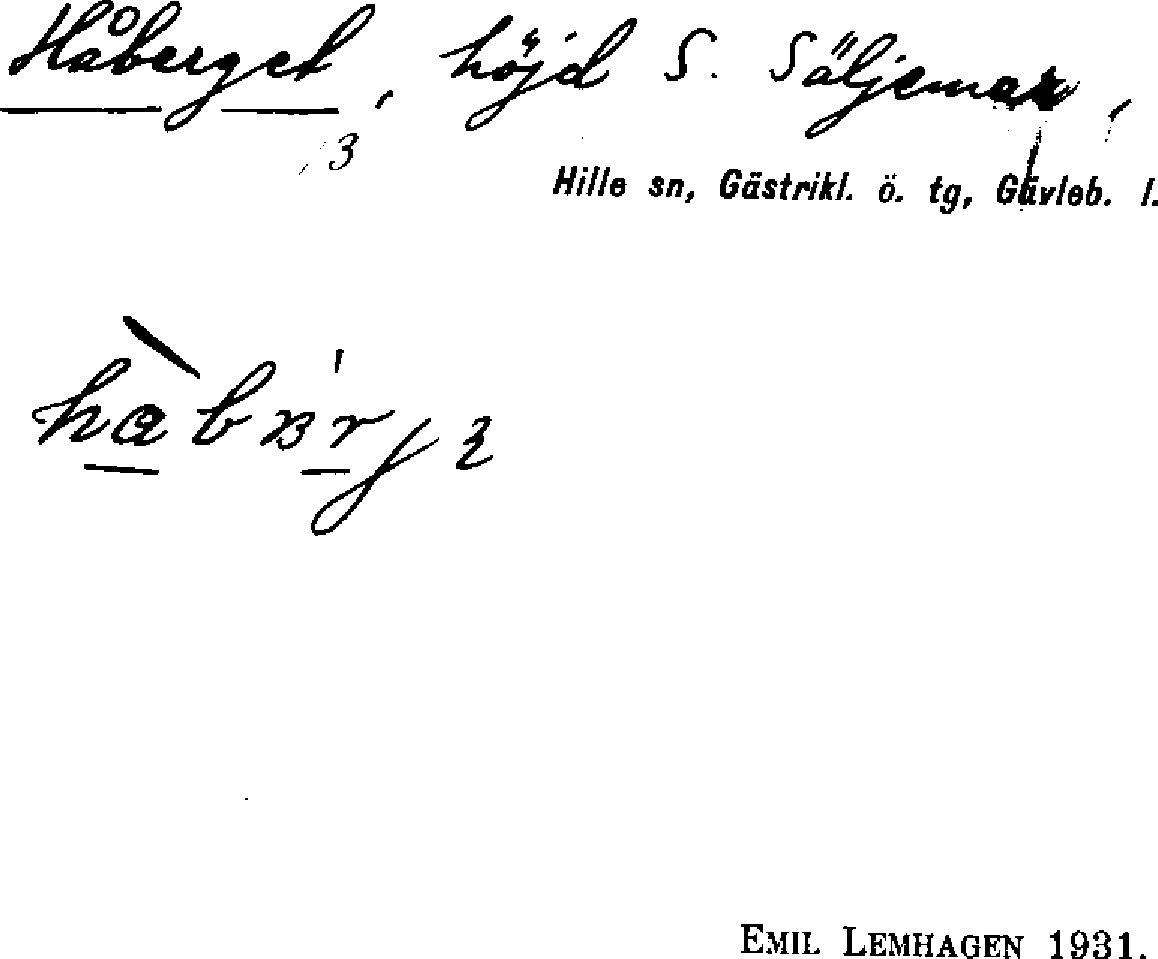 Håberget, höjd S. Säljemar,
3
Hille sn, Gästrikl. ö. tg, Gävleb. l.
EMIL LEMHAGEN 1931.